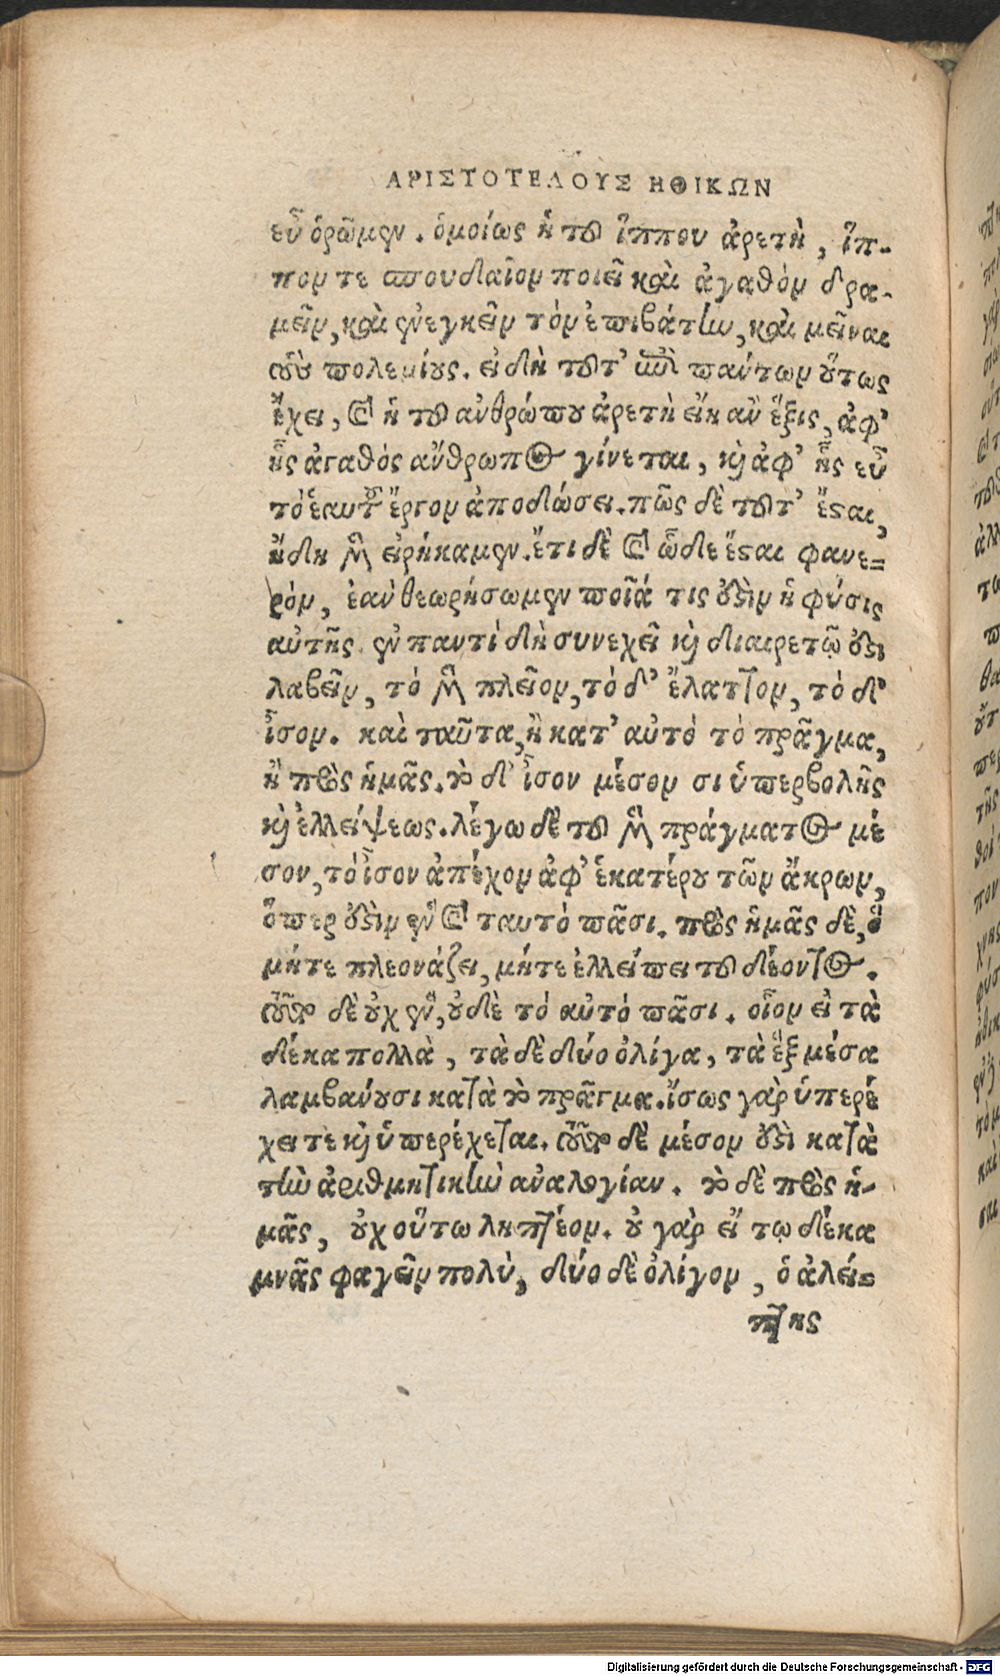 ΑΡΙΣΤΟΤΕΛΟΥΣ ΗΘΙΚΩΝ
εὖ ὁρῶμεν. ὁμοίως ἡ τοῦ ἵππου ἀρετὴ, ἵπ-
πον τε σπουδαῖον ποιεῖ καὶ ἀγαθὸν δρα-
μεῖν, καὶ ἐνεγκεῖν τὸν ἐπιβάτην, καὶ μεῖναι
τοὺς πολεμίους. εἰ δὴ τοῦτ' ἐπὶ πάντων οὕτως
ἔχει, καὶ ἡ τοῦ ἀνθρώπου ἀρετὴ εἴη ἂν ἕξις, ἀφ'
ἧς ἀγαθὸς ἄνθρωπος γίνεται, καὶ ἀφ' ἧς εὖ
τὸ ἑαυτοῦ ἔργον ἀποδώσει. πῶς δὲ τοῦτ' ἔσται,
ἤδη μὲν εἰρήκαμεν. ἔτι δὲ καὶ ὧδε ἔσται φανε=
ρὸν, ἐὰν θεωρήσωμεν ποῖά τις ἐστὶν ἡ φύσις
αὐτῆς. ἐν παντὶ δὴ συνεχεῖ καὶ διαιρετῷ ἐστι
λαβεῖν, τὸ μὲν πλεῖον, τὸ δ' ἔλαττον, τὸ δ'
ἶσον. καὶ ταῦτα, ἢ κατ' αὐτὸ τὸ πρᾶγμα,
ἢ πρὸς ἡμᾶς. τὸ δ' ἶσον μέσον τι ὑπερβολῆς
καὶ ἐλλείψεως. λέγω δὲ τοῦ μὲν πράγματος μέ
σον, τὸ ἶσον ἀπέχον ἀφ' ἑκατέρου τῶν ἄκρων,
ὅπερ ἐστὶν ἓν καὶ ταυτὸ πᾶσι. πρὸς ἡμᾶς δὲ, ὃ
μήτε πλεονάζει, μήτε ἐλλείπει τοῦ δέοντος.
τοῦτο δὲ οὐχ ἓν, οὐδὲ τὸ αὐτὸ πᾶσι. οἷον εἰ τὰ
δέκα πολλὰ, τὰ δὲ δύο ὀλίγα, τὰ ἓξ μέσα
λαμβάνουσι κατὰ τὸ πρᾶγμα. ἴσως γὰρ ὑπερέ
χει τε καὶ ὑπερέχεται. τοῦτο δὲ μέσον ἐστὶ κατὰ
τὴν ἀριθμητικὴν ἀναλογίαν. τὸ δὲ πρὸς ἡ-
μᾶς, οὐχ οὕτω ληπτέον. οὐ γὰρ εἴ τῳ δέκα
μνᾶς φαγεῖν πολὺ, δύο δὲ ὀλίγον, ὁ ἀλεί=
πτης